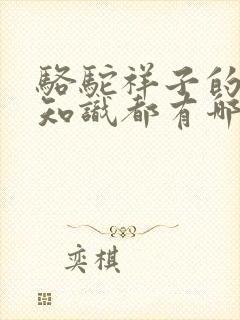 駱駝祥子的
知識都有哪
奕棋